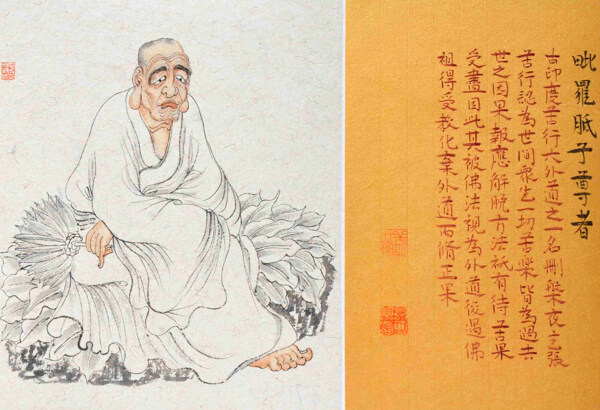 毗羅胝子尊者
古印度苦行六外道之一名刪夜主張
苦行認為世間衆生一切苦樂皆為過去
世之因果報應解脱方法祇有待苦果
受盡因此其被佛法視為外道後遇佛
祖得受教化棄外道而脩正果